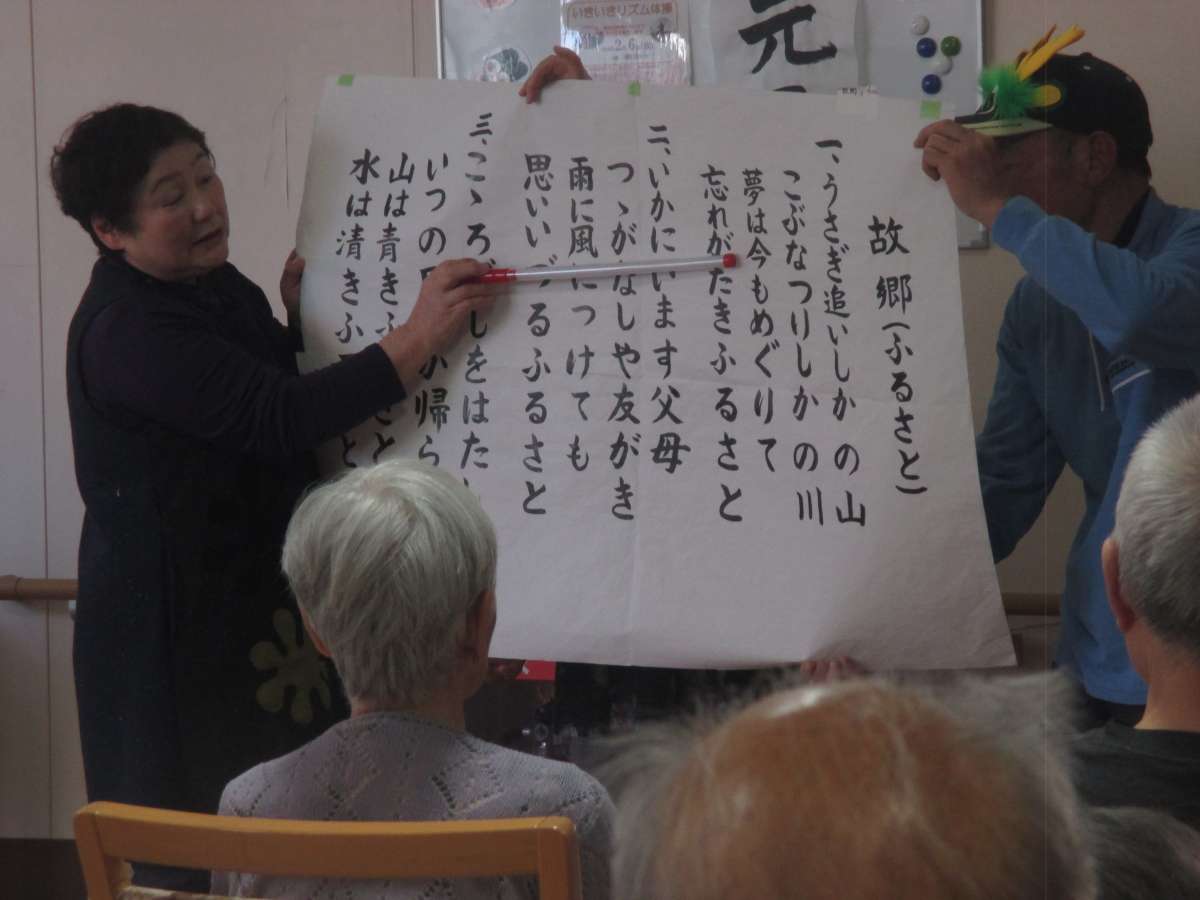 いきいきリズム体操
元
故郷(ふるさと)
一、うさぎ追いしかの山
こぶなつりしかの川
夢は今もめぐりて
忘れがたきふるさと
二、いかにいます父母
つゝがなしや友がき
雨に風につけても
思いいづるふるさと
三、こゝろざしをはた
いつの か帰ら
山は青きふ さと
水は清きふ と